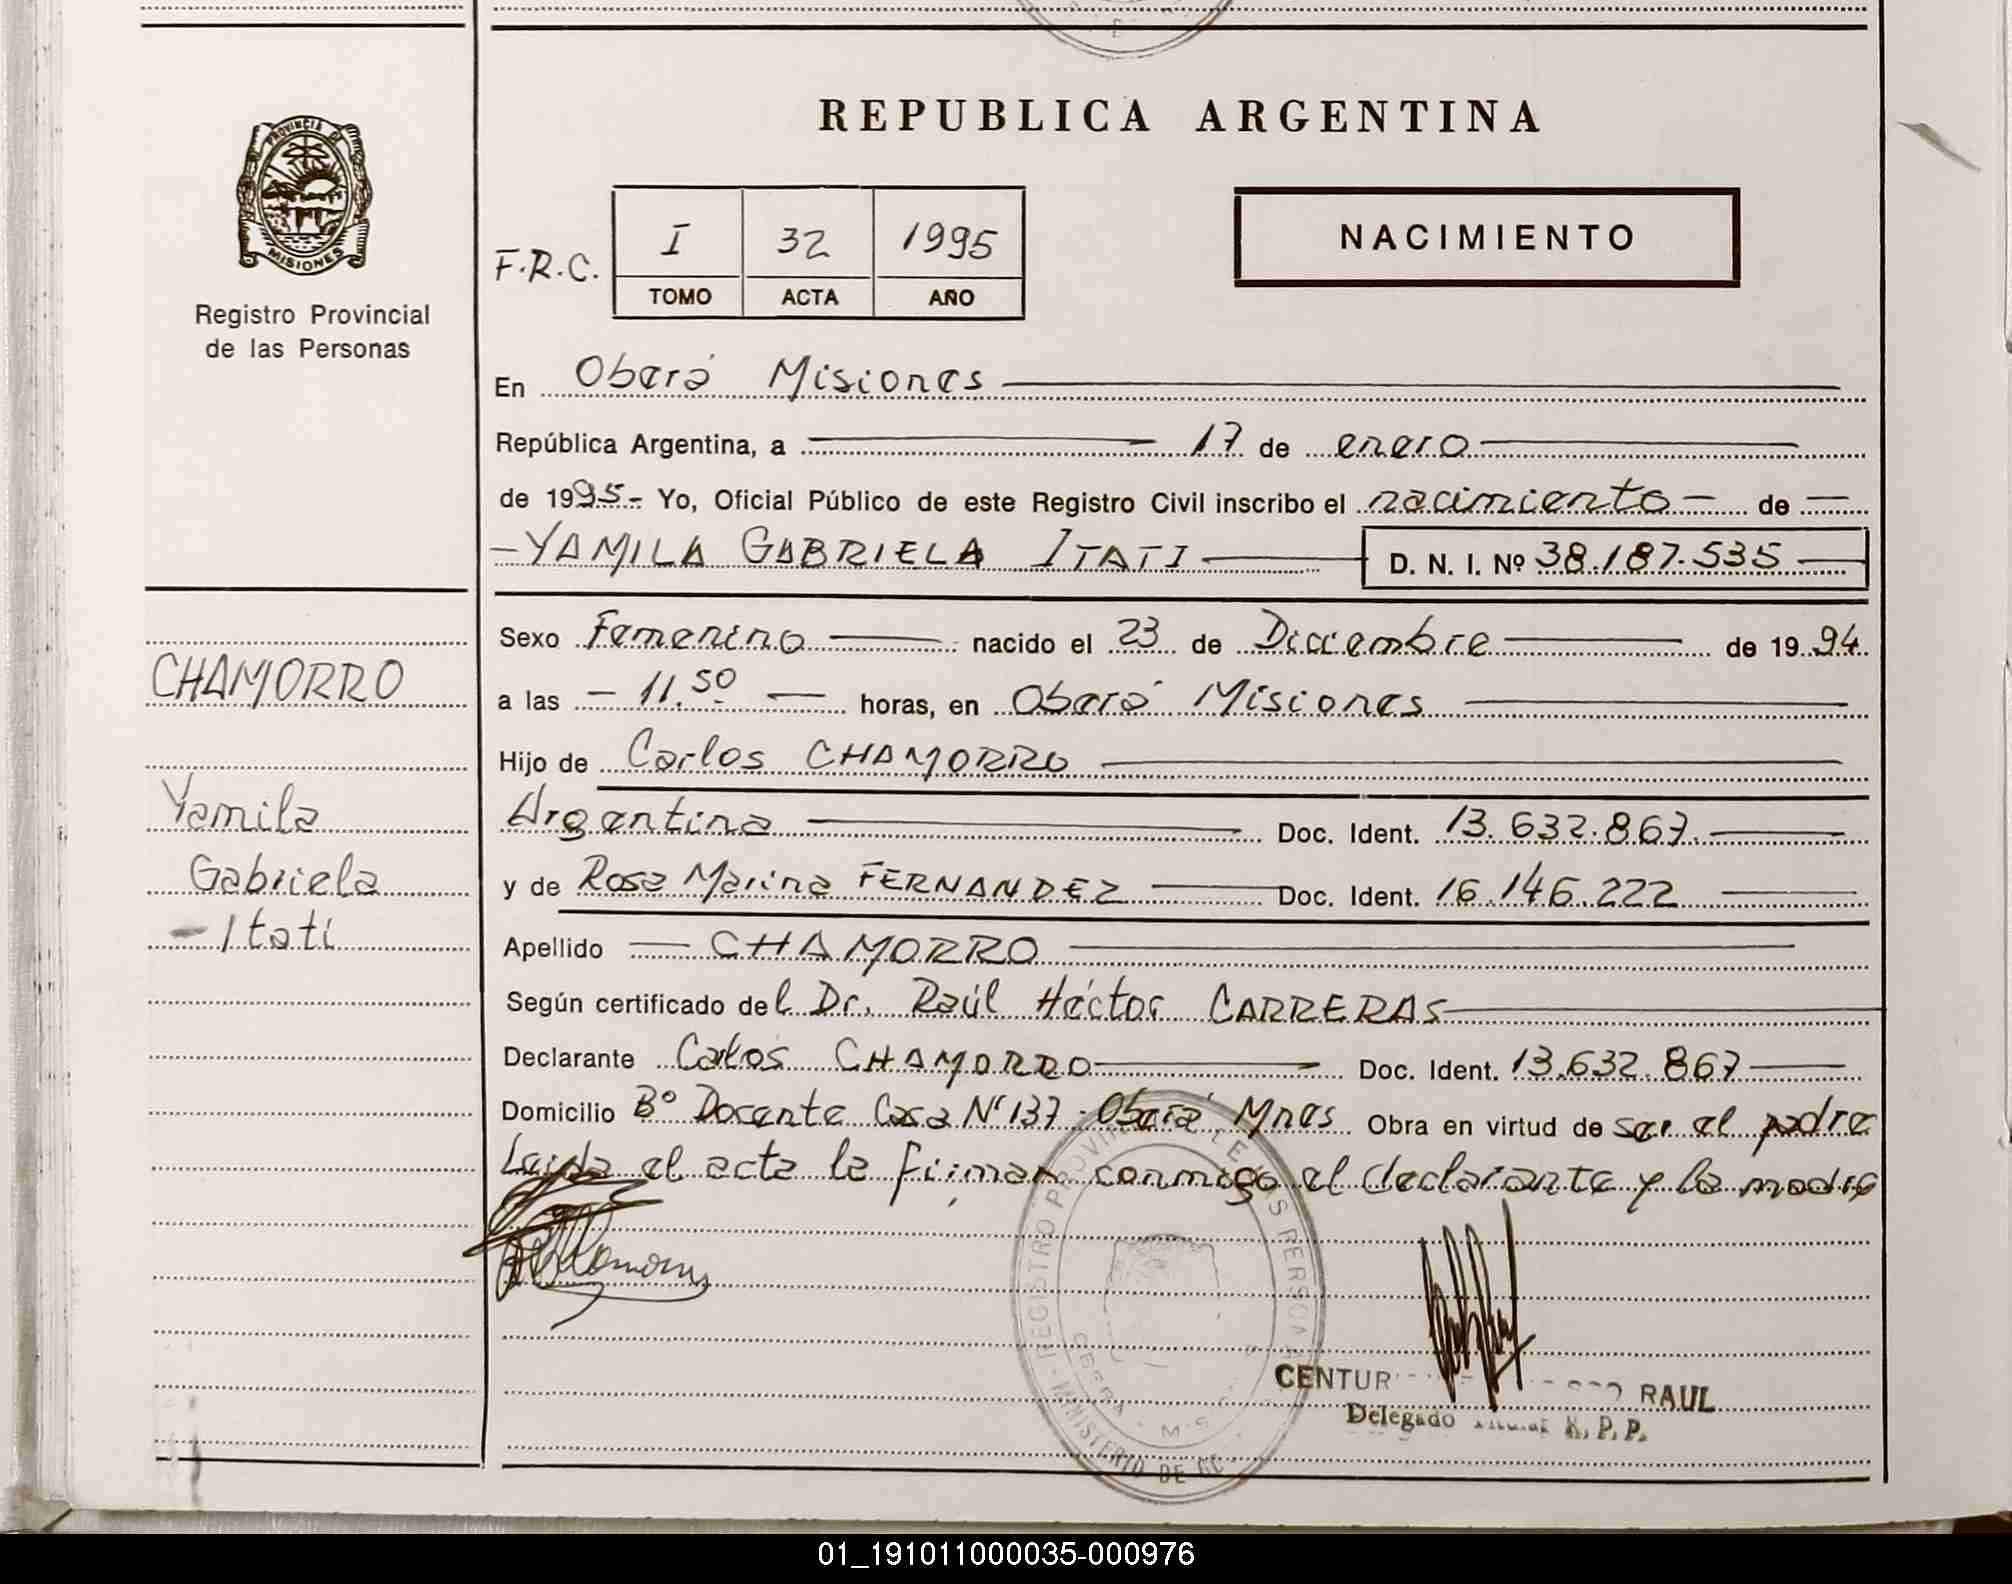 REPUBLICA ARGENTINA
PROVINCIA DE
MISIONES
Registro Provincial
de las Personas
F.R.C. I 32 1995
TOMO ACTA AÑO
NACIMIENTO
En Oberá Misiones
República Argentina, a 17 de enero
de 1995.- Yo, Oficial Público de este Registro Civil inscribo el nacimiento - de -
- YAMILA GABRIELA ITATI D. N. I. Nº 38.187.535
Sexo Femenino nacido el 23 de Diciembre de 1994
a las - 11.50 - horas, en Oberá Misiones
Hijo de Carlos CHAMORRO
Argentina Doc. Ident. 13.632.867.
y de Rosa Marina FERNANDEZ Doc. Ident. 16.146.222
Apellido CHAMORRO
Según certificado del Dr. Raúl Héctor CARRERAS
Declarante Carlos CHAMORRO Doc. Ident. 13.632.867
Domicilio Bº Docente Casa Nº 137 - Oberá Mnes Obra en virtud de ser el padre
Leida el acta la firman conmigo el declarante y la madre
CHAMORRO
Yamila
Gabriela
- Itati
REGISTRO PROVINCIAL DE LAS PERSONAS
MINISTERIO DE GO
CENTUR RAUL
Delegado R. P. P.
01_191011000035-000976